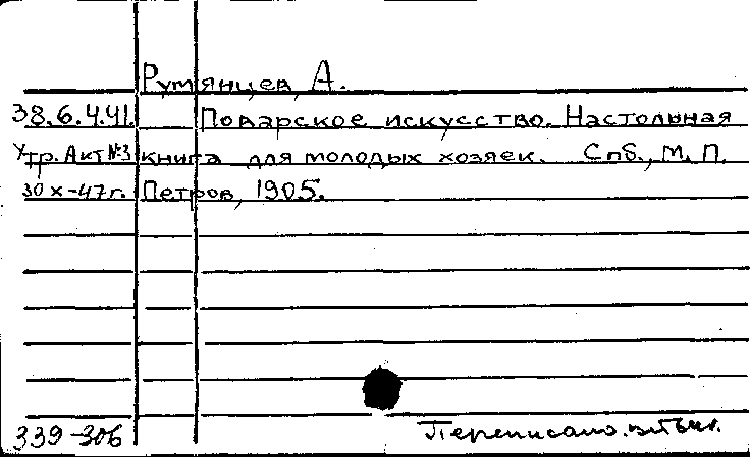 Румянцев, А.
38.6.4.41. Поварское искусство. Настольная
Утр. Акт №3 книга для молодых хозяек. Спб., М. П.
30 X-47 г. Петров, 1905.
339-306 Переписано.